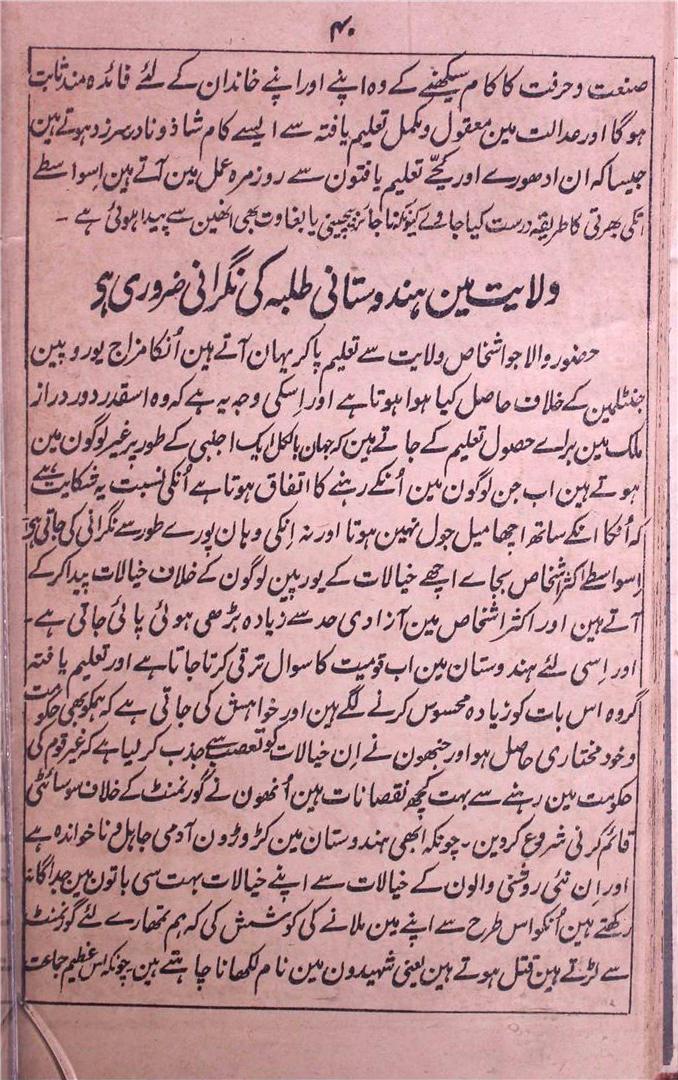 ۴۰
صنعت و حرفت کا کام سیکھنے کے وہ اپنے اور اپنے خاندان کے لئے فائدہ مند ثابت
ہوگا اور عدالت مین معقول و مکمل تعلیم یافتہ سے ایسے کام شاذ و نادر سرزد ہوتے ہین
جیسا کہ ان ادھورے اور کچے تعلیم یافتون سے روزمرہ عمل مین آتے ہین اسواسطے
انکی بھرتی کا طریقہ درست کیا جاوے کیونکہ ناجائز بیچینی یا بغاوت بھی انھین سے پیدا ہوئی ہے ۔
ولایت مین ہندوستانی طلبہ کی نگرانی ضروری ہی
حضور والا جو اشخاص ولایت سے تعلیم پاکر یہان آتے ہین اُنکا مزاج یوروپین
جنٹلمین کے خلاف حاصل کیا ہوا ہوتا ہے اور اِسکی وجہ یہ ہے کہ وہ اسقدر دور دراز
ملک مین براے حصول تعلیم کے جاتے ہین کہ جہان بالکل ایک اجنبی کے طور پر غیر لوگون مین
ہوتے ہین اب جن لوگون مین اُنکے رہنے کا اتفاق ہوتا ہے اُنکی نسبت یہ شکایت ہے
کہ اُنکا انکے ساتھ اچھا میل جول نہین ہوتا اور نہ اِنکی وہان پورے طور سے نگرانی کی جاتی ہی
اسواسطے اکثر اشخاص بجاے اچھے خیالات کے یورپین لوگون کے خلاف خیالات پیدا کرکے
آتے ہین اور اکثر اشخاص مین آزادی حد سے زیادہ بڑھی ہوئی پائی جاتی ہے۔
اور اِسی لئے ہندوستان مین اب قومیت کا سوال ترقی کرتا جاتا ہے اور تعلیم یافتہ
گروہ اس بات کو زیادہ محسوس کرنے لگے ہین اور خواہش کی جاتی ہے کہ ہمکو بھی حکومت
و خود مختاری حاصل ہو اور جنھون نے اِن خیالات کو تعصب سے جذب کرلیا ہے کہ غیر قوم کی
حکومت مین رہنے سے بہت کچھ نقصانات ہین اُنھون نے گورنمنٹ کے خلاف سوسائٹی
قائم کرنی شروع کردین ۔ چونکہ ابھی ہندوستان مین کڑوڑون آدمی جاہل و ناخواندہ ہے
اور اِن نئی روشنی والون کے خیالات سے اپنے خیالات بہت سی باتون مین جداگانہ
رکھتے ہین اُنکو اس طرح سے اپنے مین ملانے کی کوشش کی کہ ہم تمھارے لئے گورنمنٹ
سے لڑتے ہین قتل ہوتے ہین یعنی شہیدون مین نام لکھانا چاہتے ہین۔ چونکہ اس عظیم جماعت